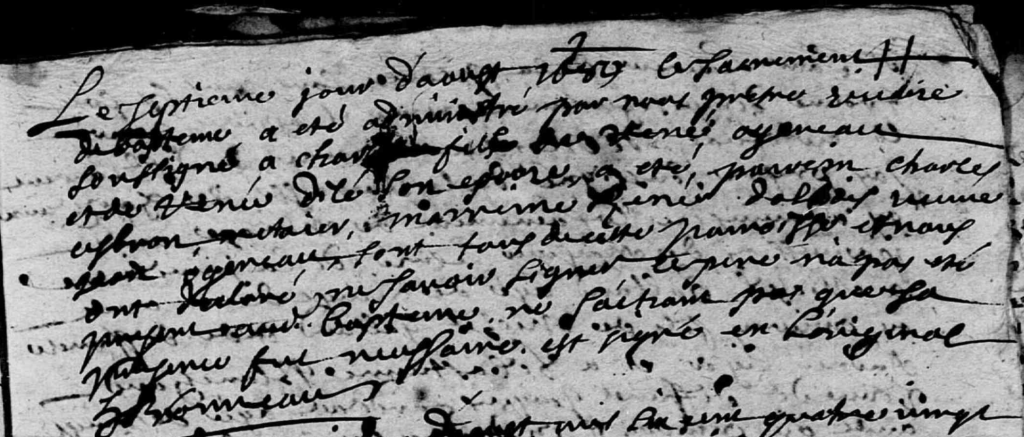 Le septieme jour d'aoust 1689 le sacrement
de bapteme a eté administré par nous pretre vicaire
soussigné a fille de René ogereau
et de Renée son epouse a eté parein charles
metaier, marreine Renée veuve
ogereau, sont tous de cette paroisse et nous
ont declaré ne savoir signer le pere n'a pas eté
present au bapteme ne sachant pas que sa
presence fut necessaire. est signé en l'original

mis six cent quatre vingt